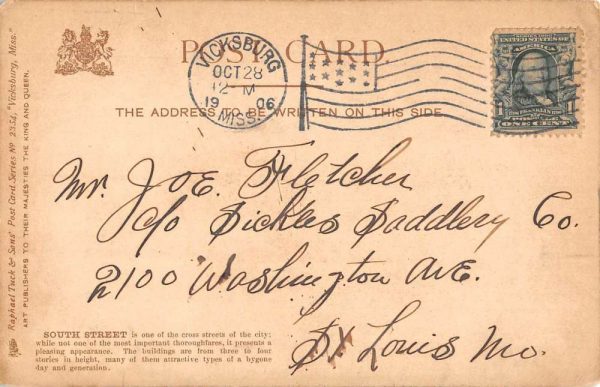 POST CARD.
VICKSBURG
OCT 28
12 M
1906
MISS.
UNITED STATES OF
AMERICA
FRANKLIN
1 ONE CENT 1
THE ADDRESS TO BE WRITTEN ON THIS SIDE
Mr. Joe. Fletcher
c/o Sickles Saddlery Co.
2100 Washington Ave.
St Louis Mo.
Raphael Tuck & Sons' Post Card. Series No 2354, "Vicksburg, Miss."
ART PUBLISHERS TO THEIR MAJESTIES THE KING AND QUEEN.
SOUTH STREET is one of the cross streets of the city;
while not one of the most important thoroughfares, it presents a
pleasing appearance. The buildings are from three to four
stories in height, many of them attractive types of a bygone
day and generation.